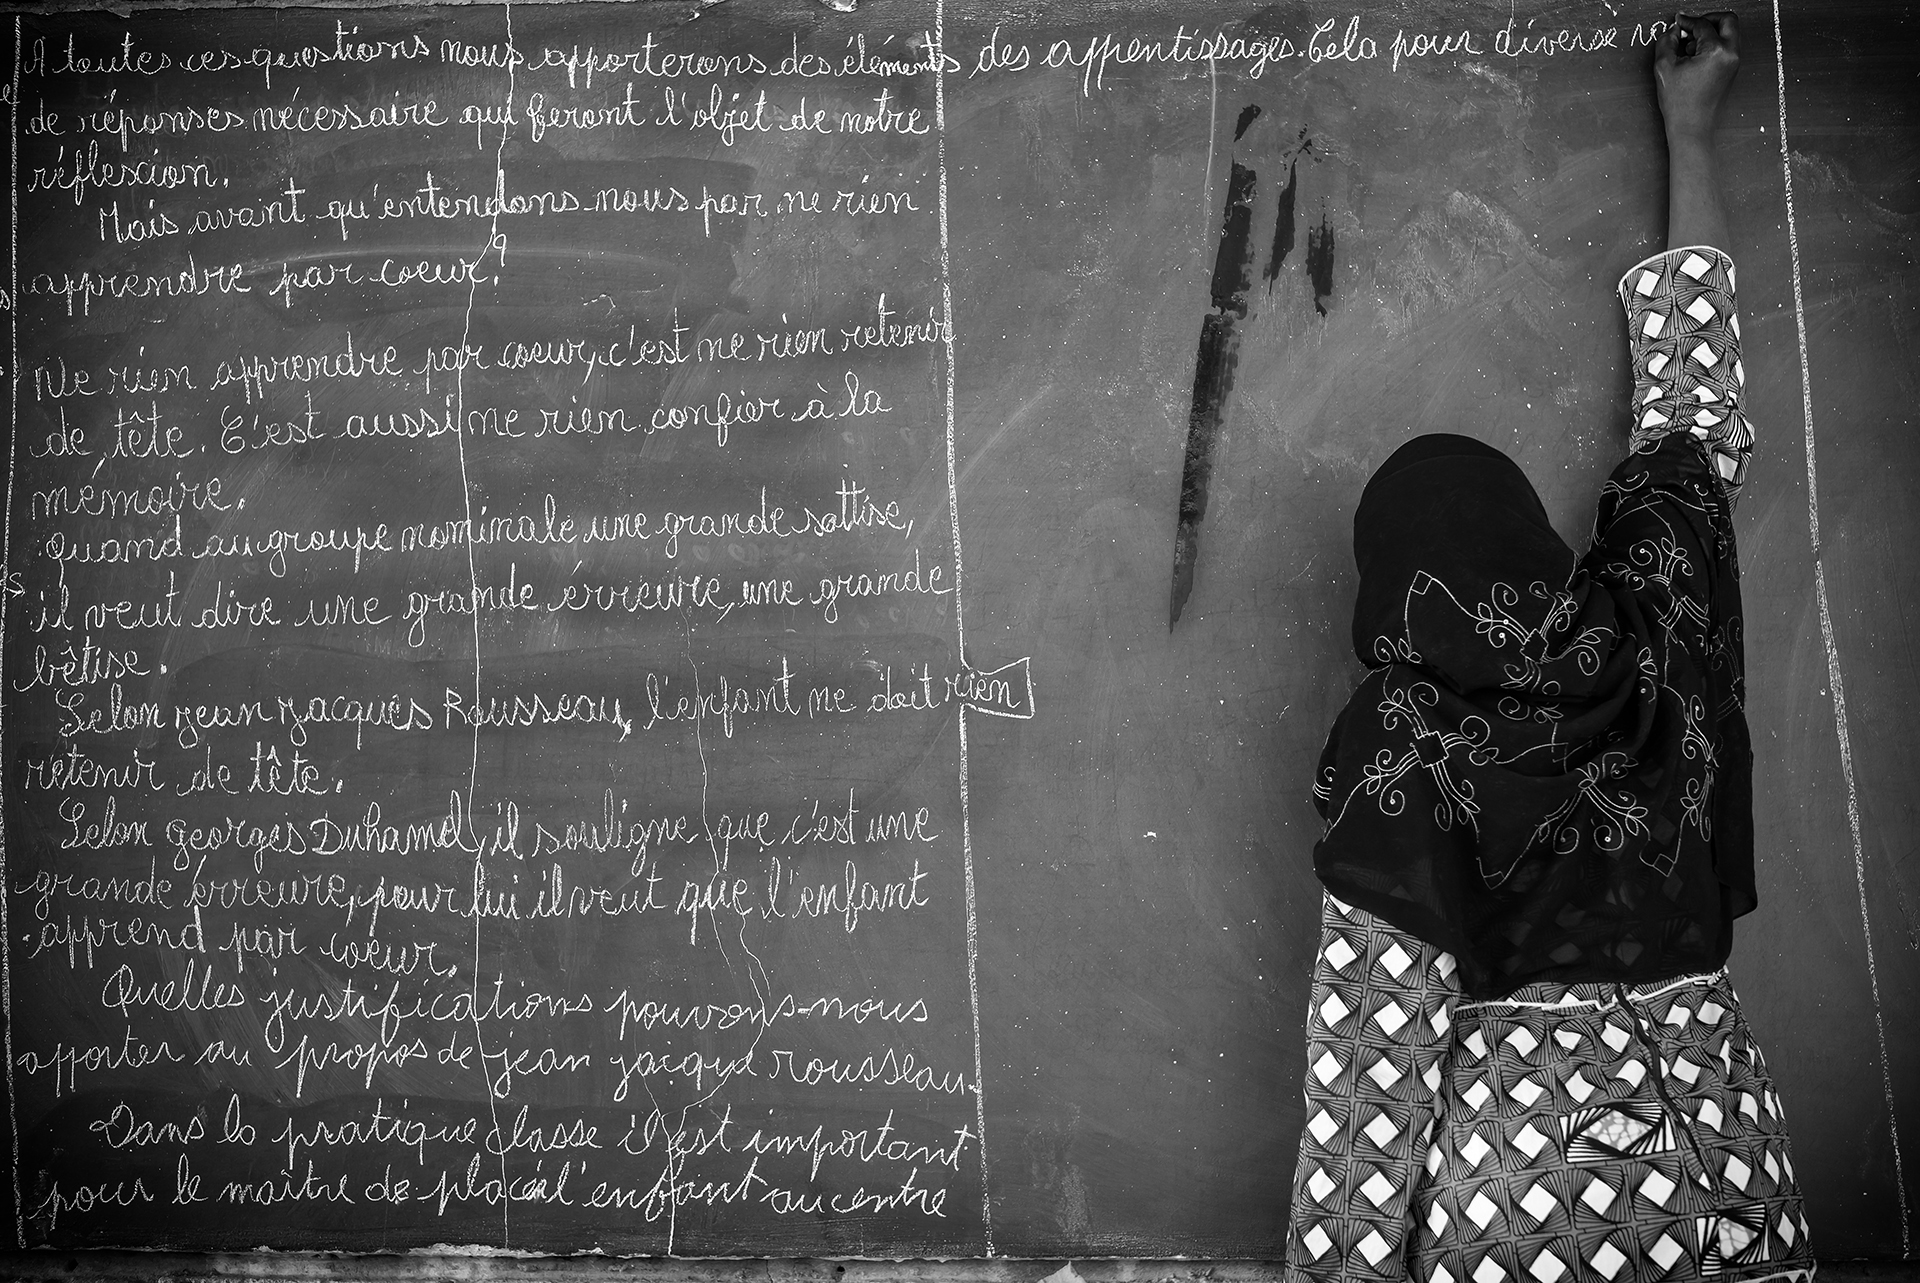 A toutes ces questions nous apporterons des éléments
de réponses nécessaire qui feront l'objet de notre
réflexion.
Mais avant qu'entendons-nous par ne rien
apprendre par coeur?
Ne rien apprendre par coeur, c'est ne rien retenir
de tête. C'est aussi ne rien confier à la
mémoire.
Quand au groupe nominale une grande sottise,
il veut dire une grande érreure, une grande
bêtise.
Selon jean jacques Rousseau, l'enfant ne doit rien
retenir de tête.
Selon Georges Duhamel, il souligne que c'est une
grande érreure, pour lui il veut que l'enfant
apprend par coeur.
Quelles justifications pouvons-nous
apporter au propos de jean jacque rousseau.
Dans la pratique classe il est important
pour le maître de placé l'enfant au centre
des apprentissages. Cela pour diverse